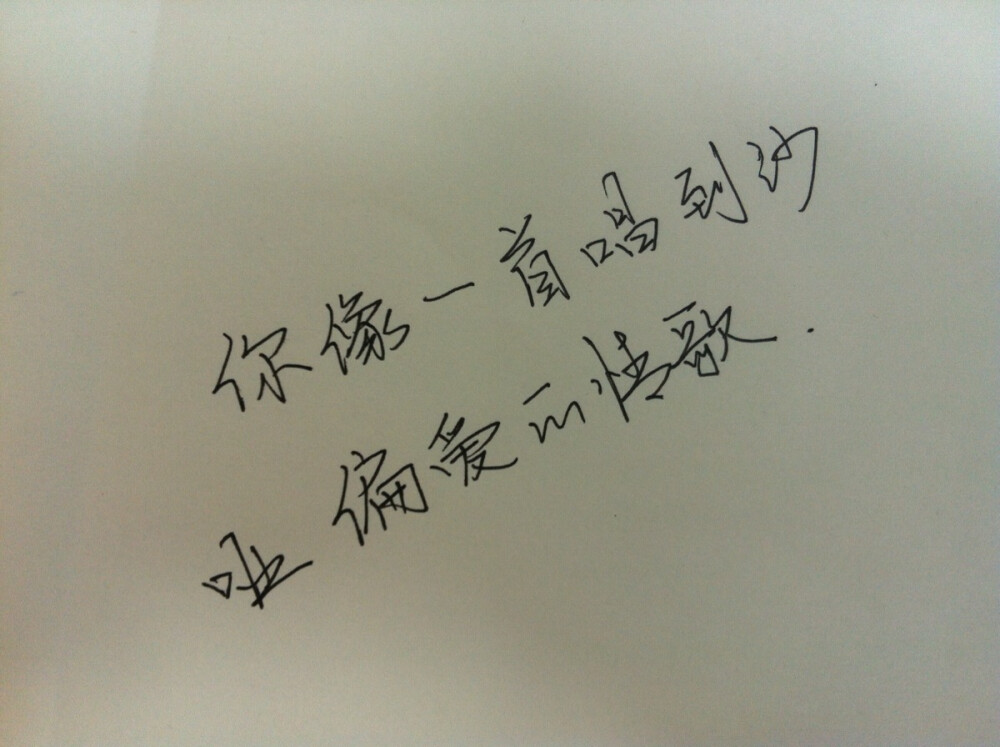 你像一首唱到沙
哑偏爱的情歌.